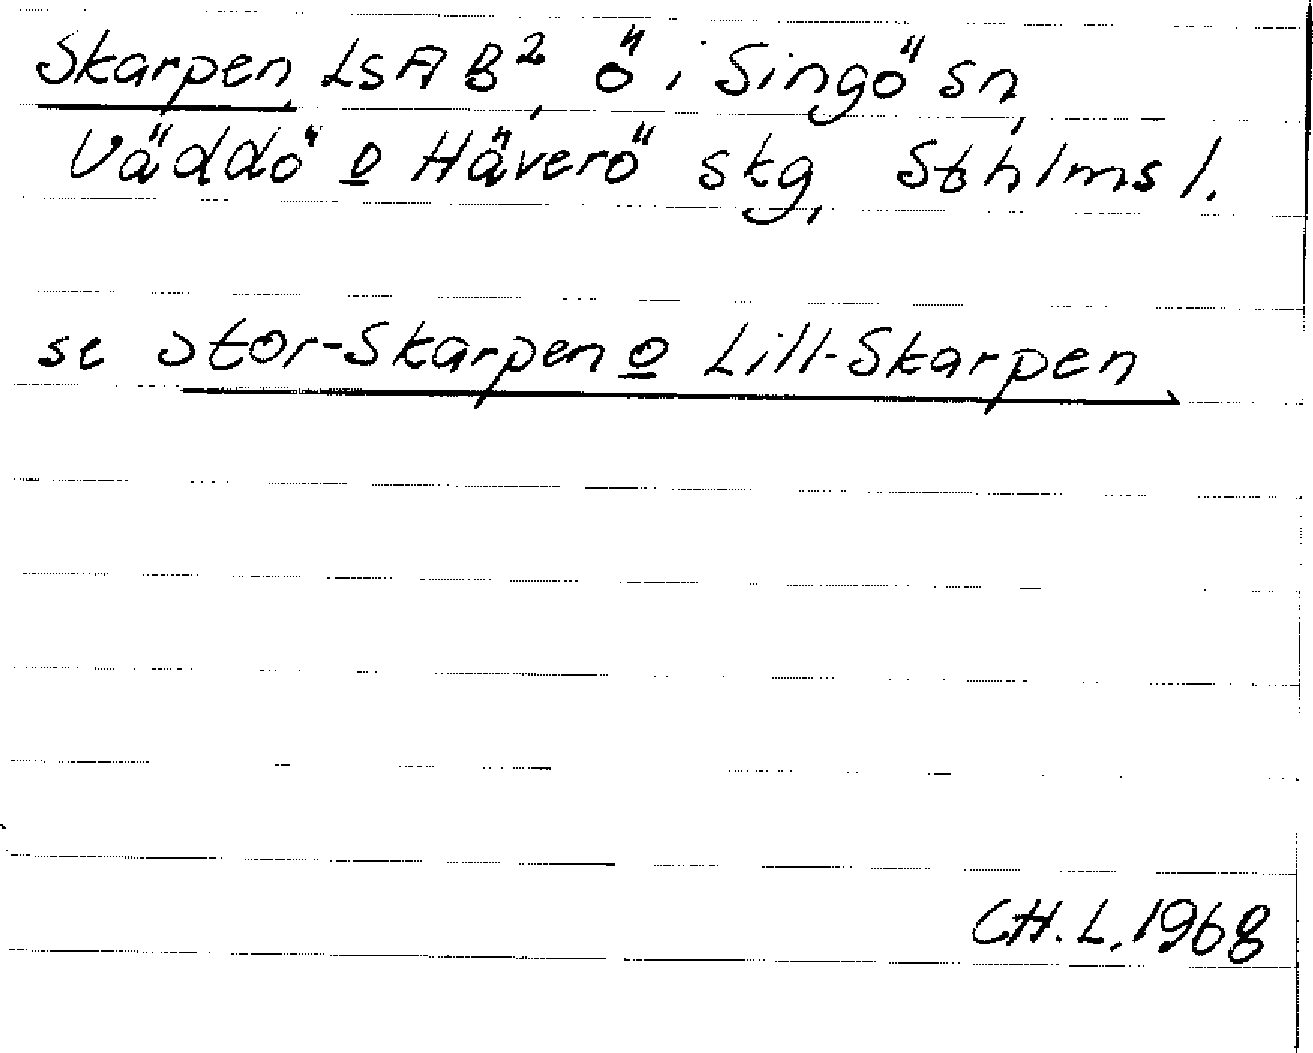 Skarpen LSA B², ö i Singö sn,
Väddö o Häverö skg, Sthlms l.
se Stor-Skarpen o Lill-Skarpen
CH. L. 1968